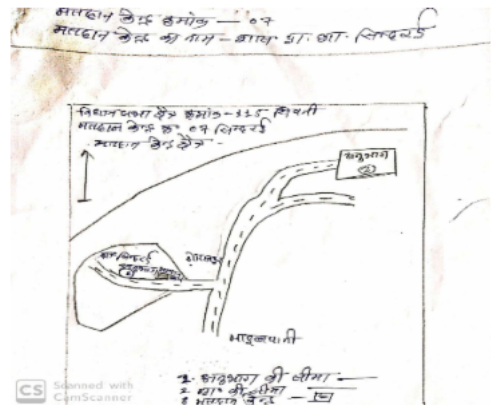 मतदान केन्द्र क्रमांक — 07
मतदान केन्द्र का नाम - शास. प्रा. शा. सिन्दरई
विधान सभा क्षेत्र क्रमांक-115 सिवनी
मतदान केन्द्र क्र 07 सिन्दरई
मतदान केन्द्र क्षेत्र
अनुभाग
2
1. अनुभाग की सीमा
2. की सीमा
3 मतदान केन्द्र
CS Scanned with
CamScanner